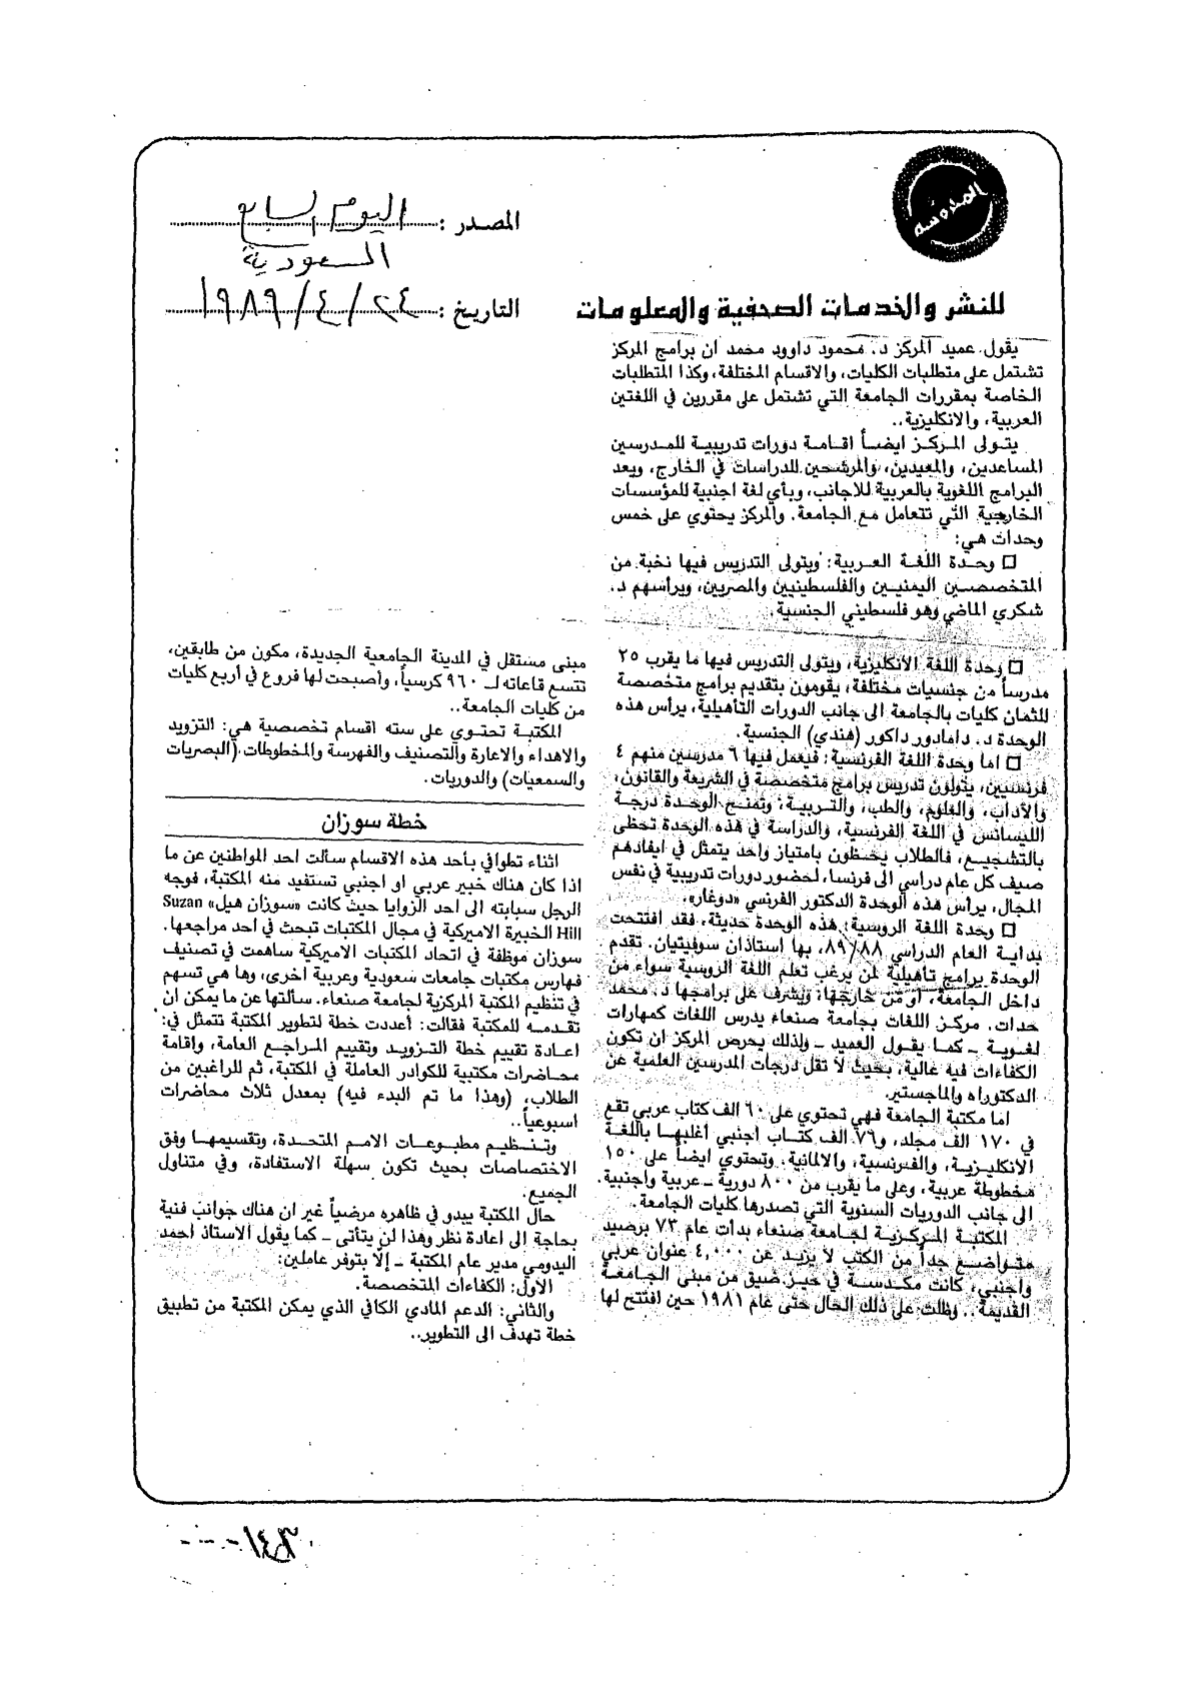 المدوسة
المصدر: اليوم السابع
السعودية
التاريخ: ٢٤/٤/١٩٨٩
للنشر والخدمات الصحفية والمعلومات
يقول عميد المركز د. محمود داوود محمد ان برامج المركز
تشتمل على متطلبات الكليات، والاقسام المختلفة، وكذا المتطلبات
الخاصة بمقررات الجامعة التي تشتمل على مقررين في اللغتين
العربية، والانكليزية..
يتولى المركز ايضاً اقامة دورات تدريبية للمدرسين
المساعدين، والمعيدين، والمرشحين للدراسات في الخارج، ويعد
البرامج اللغوية بالعربية للاجانب، وبأي لغة اجنبية للمؤسسات
الخارجية التي تتعامل مع الجامعة. والمركز يحتوي على خمس
وحدات هي:
□ وحدة اللغة العربية: ويتولى التدريس فيها نخبة من
المتخصصين اليمنيين والفلسطينيين والمصريين، ويرأسهم د.
شكري الماضي وهو فلسطيني الجنسية.
□ وحدة اللغة الانكليزية، ويتولى التدريس فيها ما يقرب ٢٥
مدرساً من جنسيات مختلفة، يقومون بتقديم برامج متخصصة
للثمان كليات بالجامعة الى جانب الدورات التأهيلية، يرأس هذه
الوحدة د. دامادور داكور (هندي) الجنسية.
□ اما وحدة اللغة الفرنسية: فيعمل فيها ٦ مدرسين منهم ٤
فرنسيين، يتولون تدريس برامج متخصصة في الشريعة والقانون،
والآداب، والعلوم، والطب، والتربية: وتمنح الوحدة درجة
الليسانس في اللغة الفرنسية، والدراسة في هذه الوحدة تحظى
بالتشجيع، فالطلاب يحظون بامتياز واحد يتمثل في ايفادهم
صيف كل عام دراسي الى فرنسا، لحضور دورات تدريبية في نفس
المجال، يرأس هذه الوحدة الدكتور الفرنسي «دوغار».
□ وحدة اللغة الروسية: هذه الوحدة حديثة، فقد افتتحت
بداية العام الدراسي ٨٨/٨٩، بها استاذان سوفيتيان. تقدم
الوحدة برامج تأهيلية لمن يرغب تعلم اللغة الروسية سواء من
داخل الجامعة، أو من خارجها: ويشرف على برامجها د. محمد
حدات. مركز اللغات بجامعة صنعاء يدرس اللغات كمهارات
لغوية ـ كما يقول العميد ـ ولذلك يحرص المركز ان تكون
الكفاءات فيه عالية، بحيث لا تقل درجات المدرسين العلمية عن
الدكتوراه والماجستير.
اما مكتبة الجامعة فهي تحتوي على ٦٠ الف كتاب عربي تقع
في ١٧٠ الف مجلد، و٧٦ الف كتاب اجنبي أغلبها باللغة
الانكليزية، والفرنسية، والالمانية. وتحتوي ايضاً على ١٥٠
مخطوطة عربية، وعلى ما يقرب من ٨٠٠ دورية ـ عربية واجنبية.
الى جانب الدوريات السنوية التي تصدرها كليات الجامعة.
المكتبة المركزية لجامعة صنعاء بدأت عام ٧٣ برصيد
متواضع جداً من الكتب لا يزيد عن ٤,٠٠٠ عنوان عربي
واجنبي، كانت مكدسة في حيز ضيق من مبنى الجامعة
القديمة.. وظلت على ذلك الحال حتى عام ١٩٨١ حين افتتح لها
مبنى مستقل في المدينة الجامعية الجديدة، مكون من طابقين،
تتسع قاعاته لـ ٩٦٠ كرسياً، وأصبحت لها فروع في أربع كليات
من كليات الجامعة..
المكتبة تحتوي على سته اقسام تخصصية هي: التزويد
والاهداء والاعارة والتصنيف والفهرسة والمخطوطات (البصريات
والسمعيات) والدوريات.
خطة سوزان
اثناء تطوافي بأحد هذه الاقسام سألت احد المواطنين عن ما
اذا كان هناك خبير عربي او اجنبي تستفيد منه المكتبة، فوجه
الرجل سبابته الى احد الزوايا حيث كانت «سوزان هيل» Suzan
Hill الخبيرة الاميركية في مجال المكتبات تبحث في احد مراجعها.
سوزان موظفة في اتحاد المكتبات الاميركية ساهمت في تصنيف
فهارس مكتبات جامعات سعودية وعربية اخرى، وها هي تسهم
في تنظيم المكتبة المركزية لجامعة صنعاء. سألتها عن ما يمكن ان
تقدمه للمكتبة فقالت: أعددت خطة لتطوير المكتبة تتمثل في:
اعادة تقييم خطة التزويد وتقييم المراجع العامة، وإقامة
محاضرات مكتبية للكوادر العاملة في المكتبة، ثم للراغبين من
الطلاب، (وهذا ما تم البدء فيه) بمعدل ثلاث محاضرات
اسبوعياً..
وتنظيم مطبوعات الامم المتحدة، وتقسيمها وفق
الاختصاصات بحيث تكون سهلة الاستفادة، وفي متناول
الجميع.
حال المكتبة يبدو في ظاهره مرضياً غير ان هناك جوانب فنية
بحاجة الى اعادة نظر وهذا لن يتأتى ـ كما يقول الاستاذ احمد
اليدومي مدير عام المكتبة ـ إلّا بتوفر عاملين:
الاول: الكفاءات المتخصصة.
والثاني: الدعم المادي الكافي الذي يمكن المكتبة من تطبيق
خطة تهدف الى التطوير..